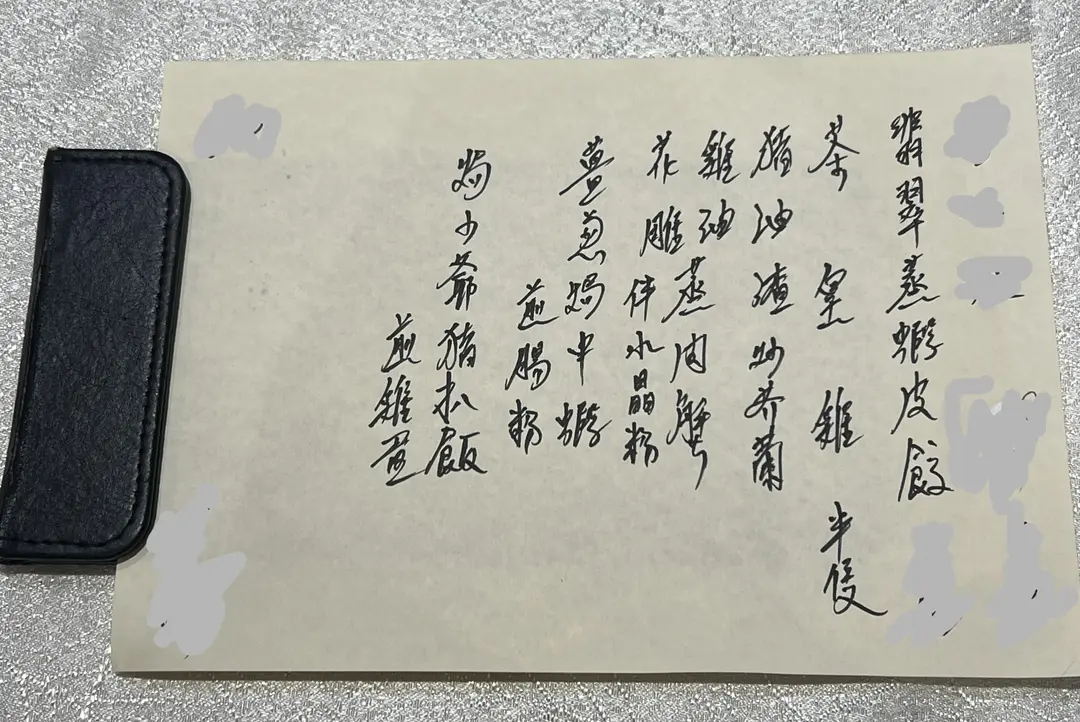 翡翠蒸蝦皮餃
茶皇雞 半隻
豬油渣炒芥蘭
雞油蒸肉蟹
花雕伴水晶粉
薑葱焗中蝦
煎腸粉
焗少爺豬扒飯
煎雞蛋